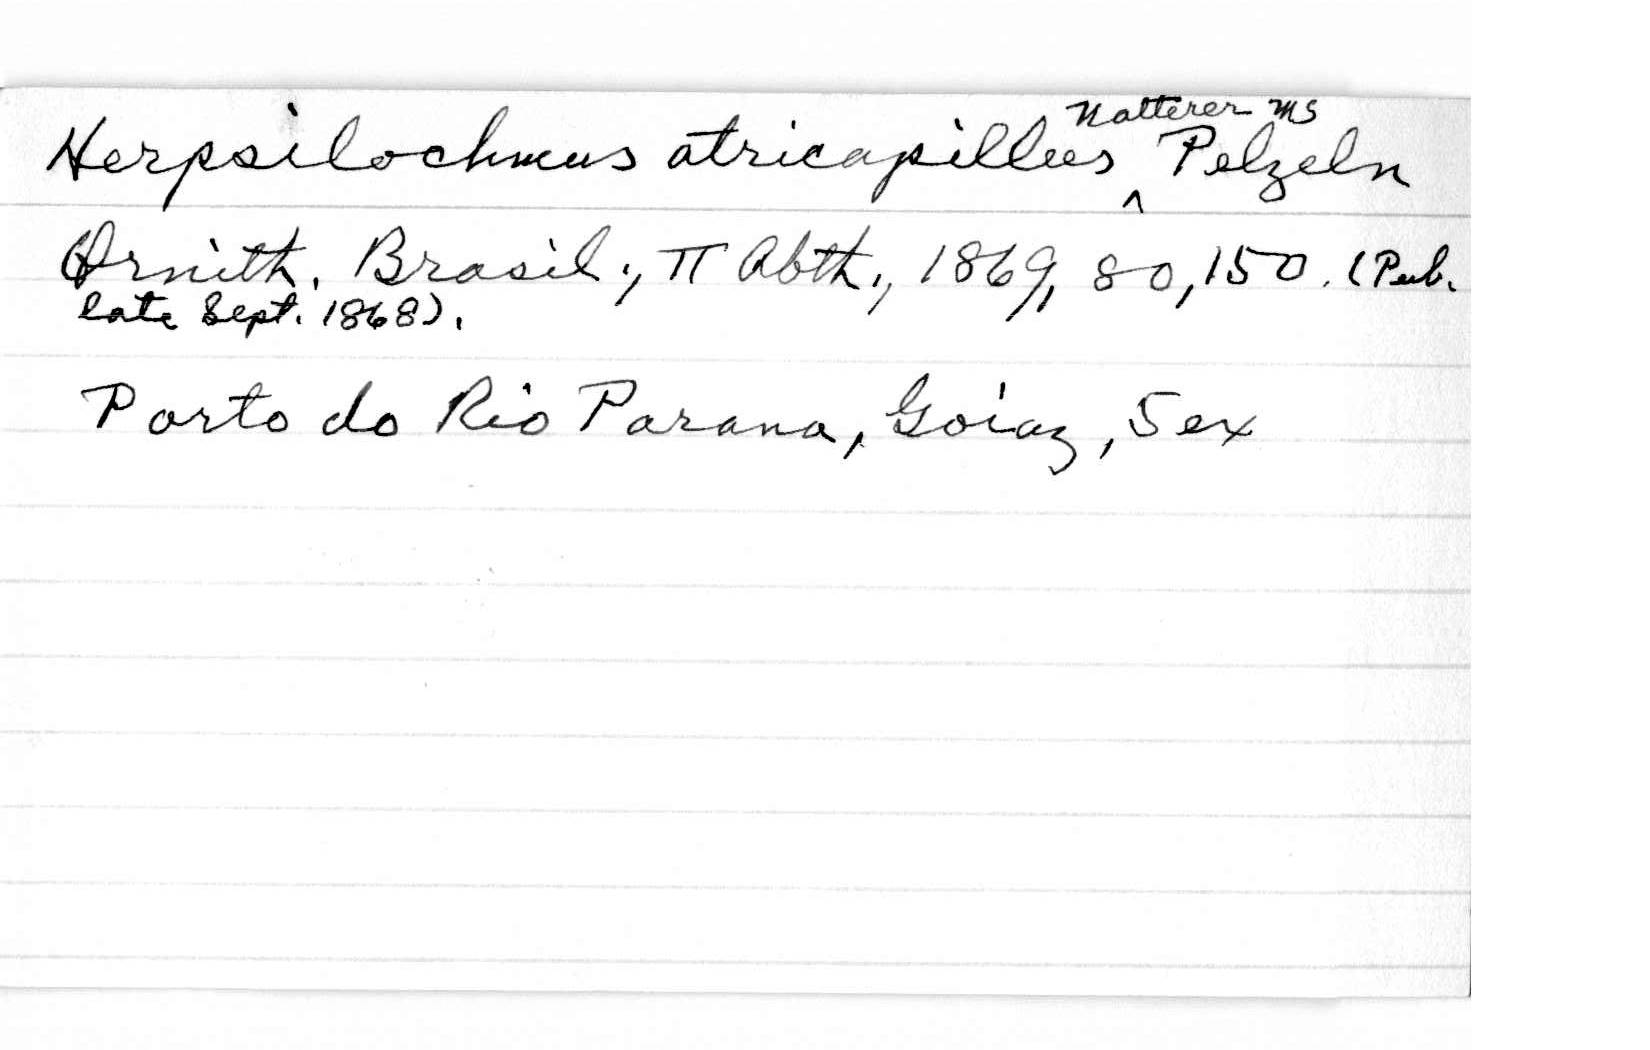 Herpsilochmus atricapillus ^ Natterer MS Pelzeln
Ornith. Brasil., II Abth., 1869, 80, 150. (Pub.
late Sept. 1868).
Porto do Rio Parana, Goiaz, 5 ex